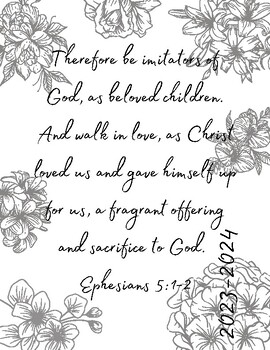 Therefore be imitators of
God, as beloved children.
And walk in love, as Christ
loved us and gave himself up
for us, a fragrant offering
and sacrifice to God.
Ephesians 5:1-2
2023-2024